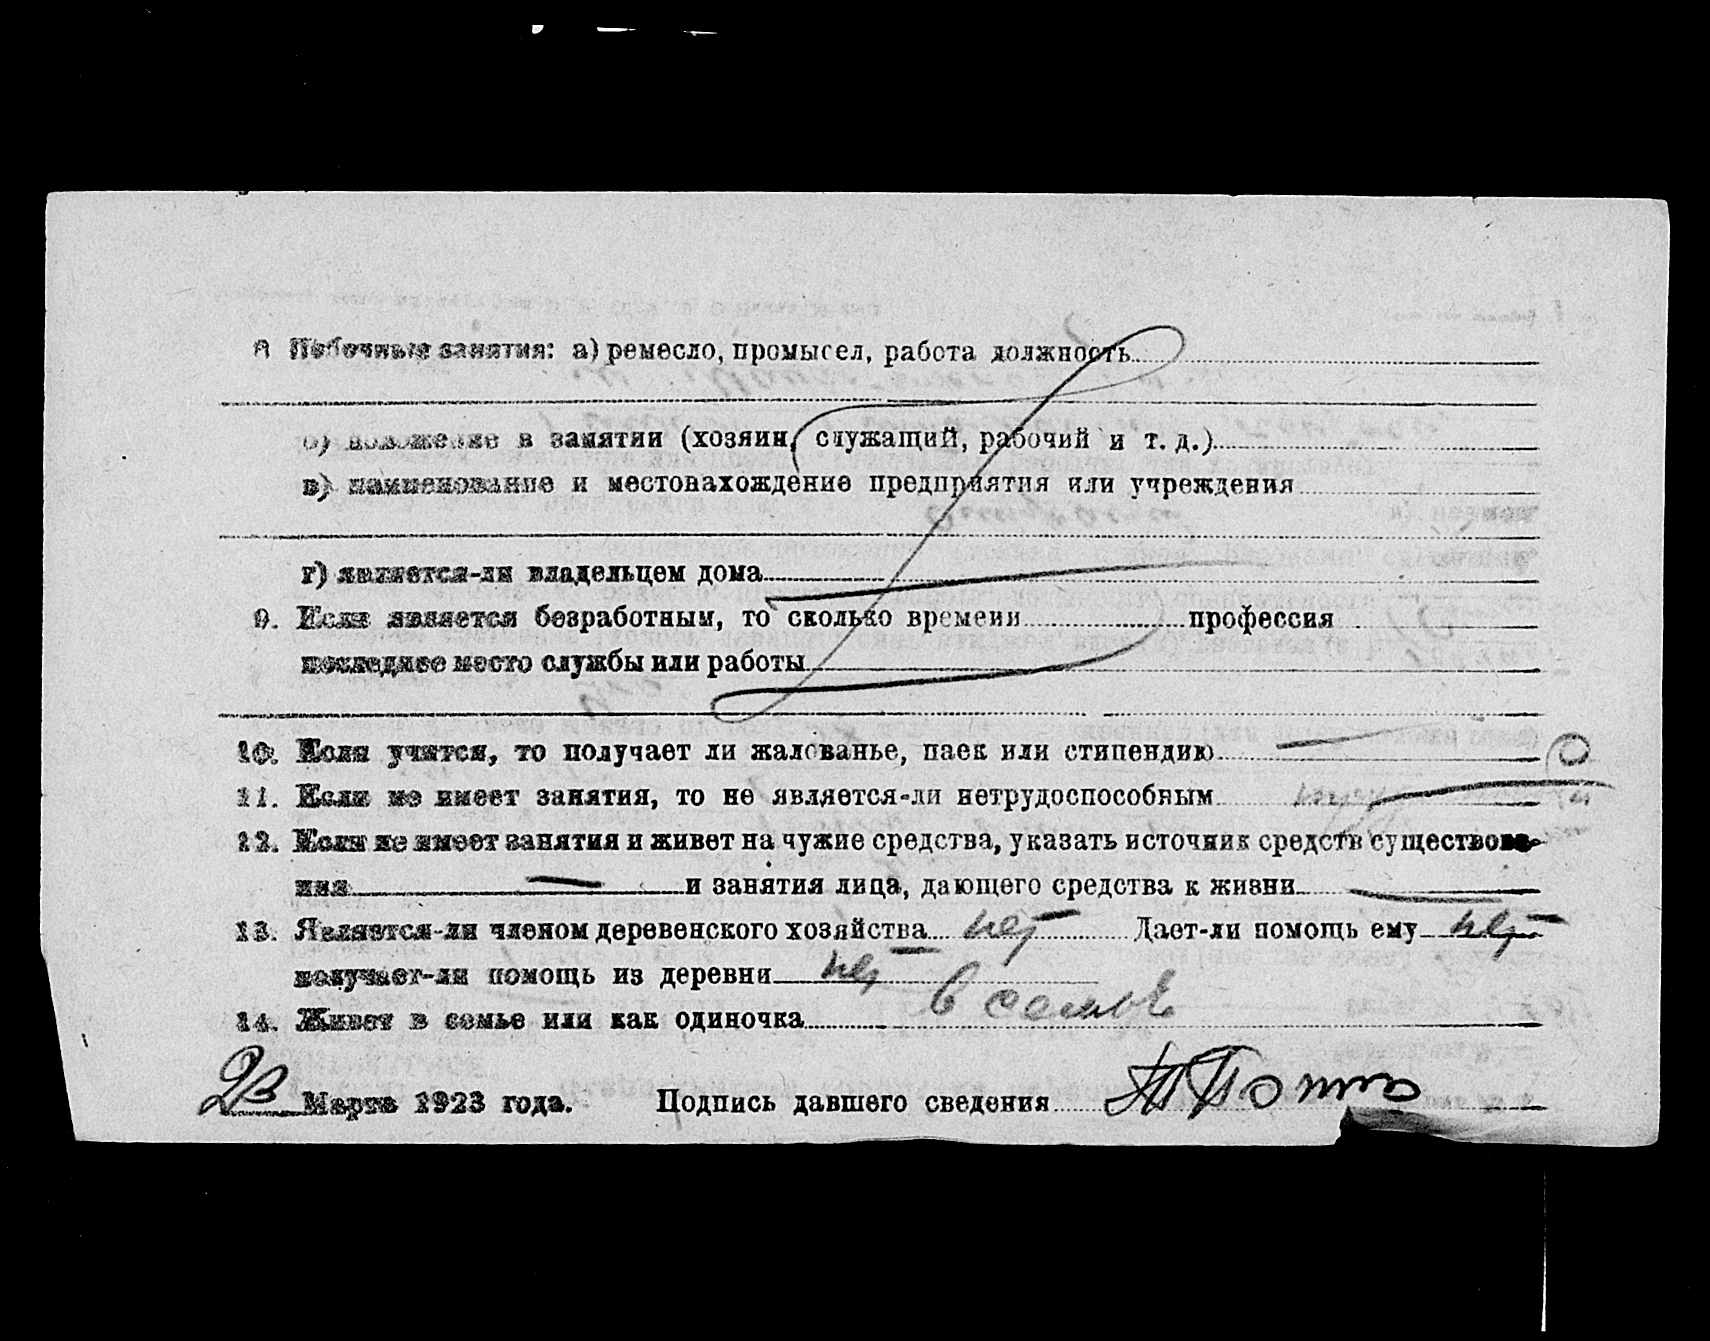 8 Побочные занятия: а) ремесло, промысел, работа должность
б) положение в занятии (хозяин, служащий, рабочий и т. д.)
в) наименование и местонахождение предприятия или учреждения
г) является-ли владельцем дома
9. Если является безработным, то сколько времени профессия
последнее место службы или работы
10. Если учится, то получает ли жалованье, паек или стипендию
11. Если не имеет занятия, то не является-ли нетрудоспособным
12. Если не имеет занятия и живет на чужие средства, указать источник средств существова-
ния — и занятия лица, дающего средства к жизни
13. Является-ли членом деревенского хозяйства нет Дает-ли помощь ему нет
получает-ли помощь из деревни нет
14. Живет в семье или как одиночка в семье
Марта 1923 года. Подпись давшего сведения